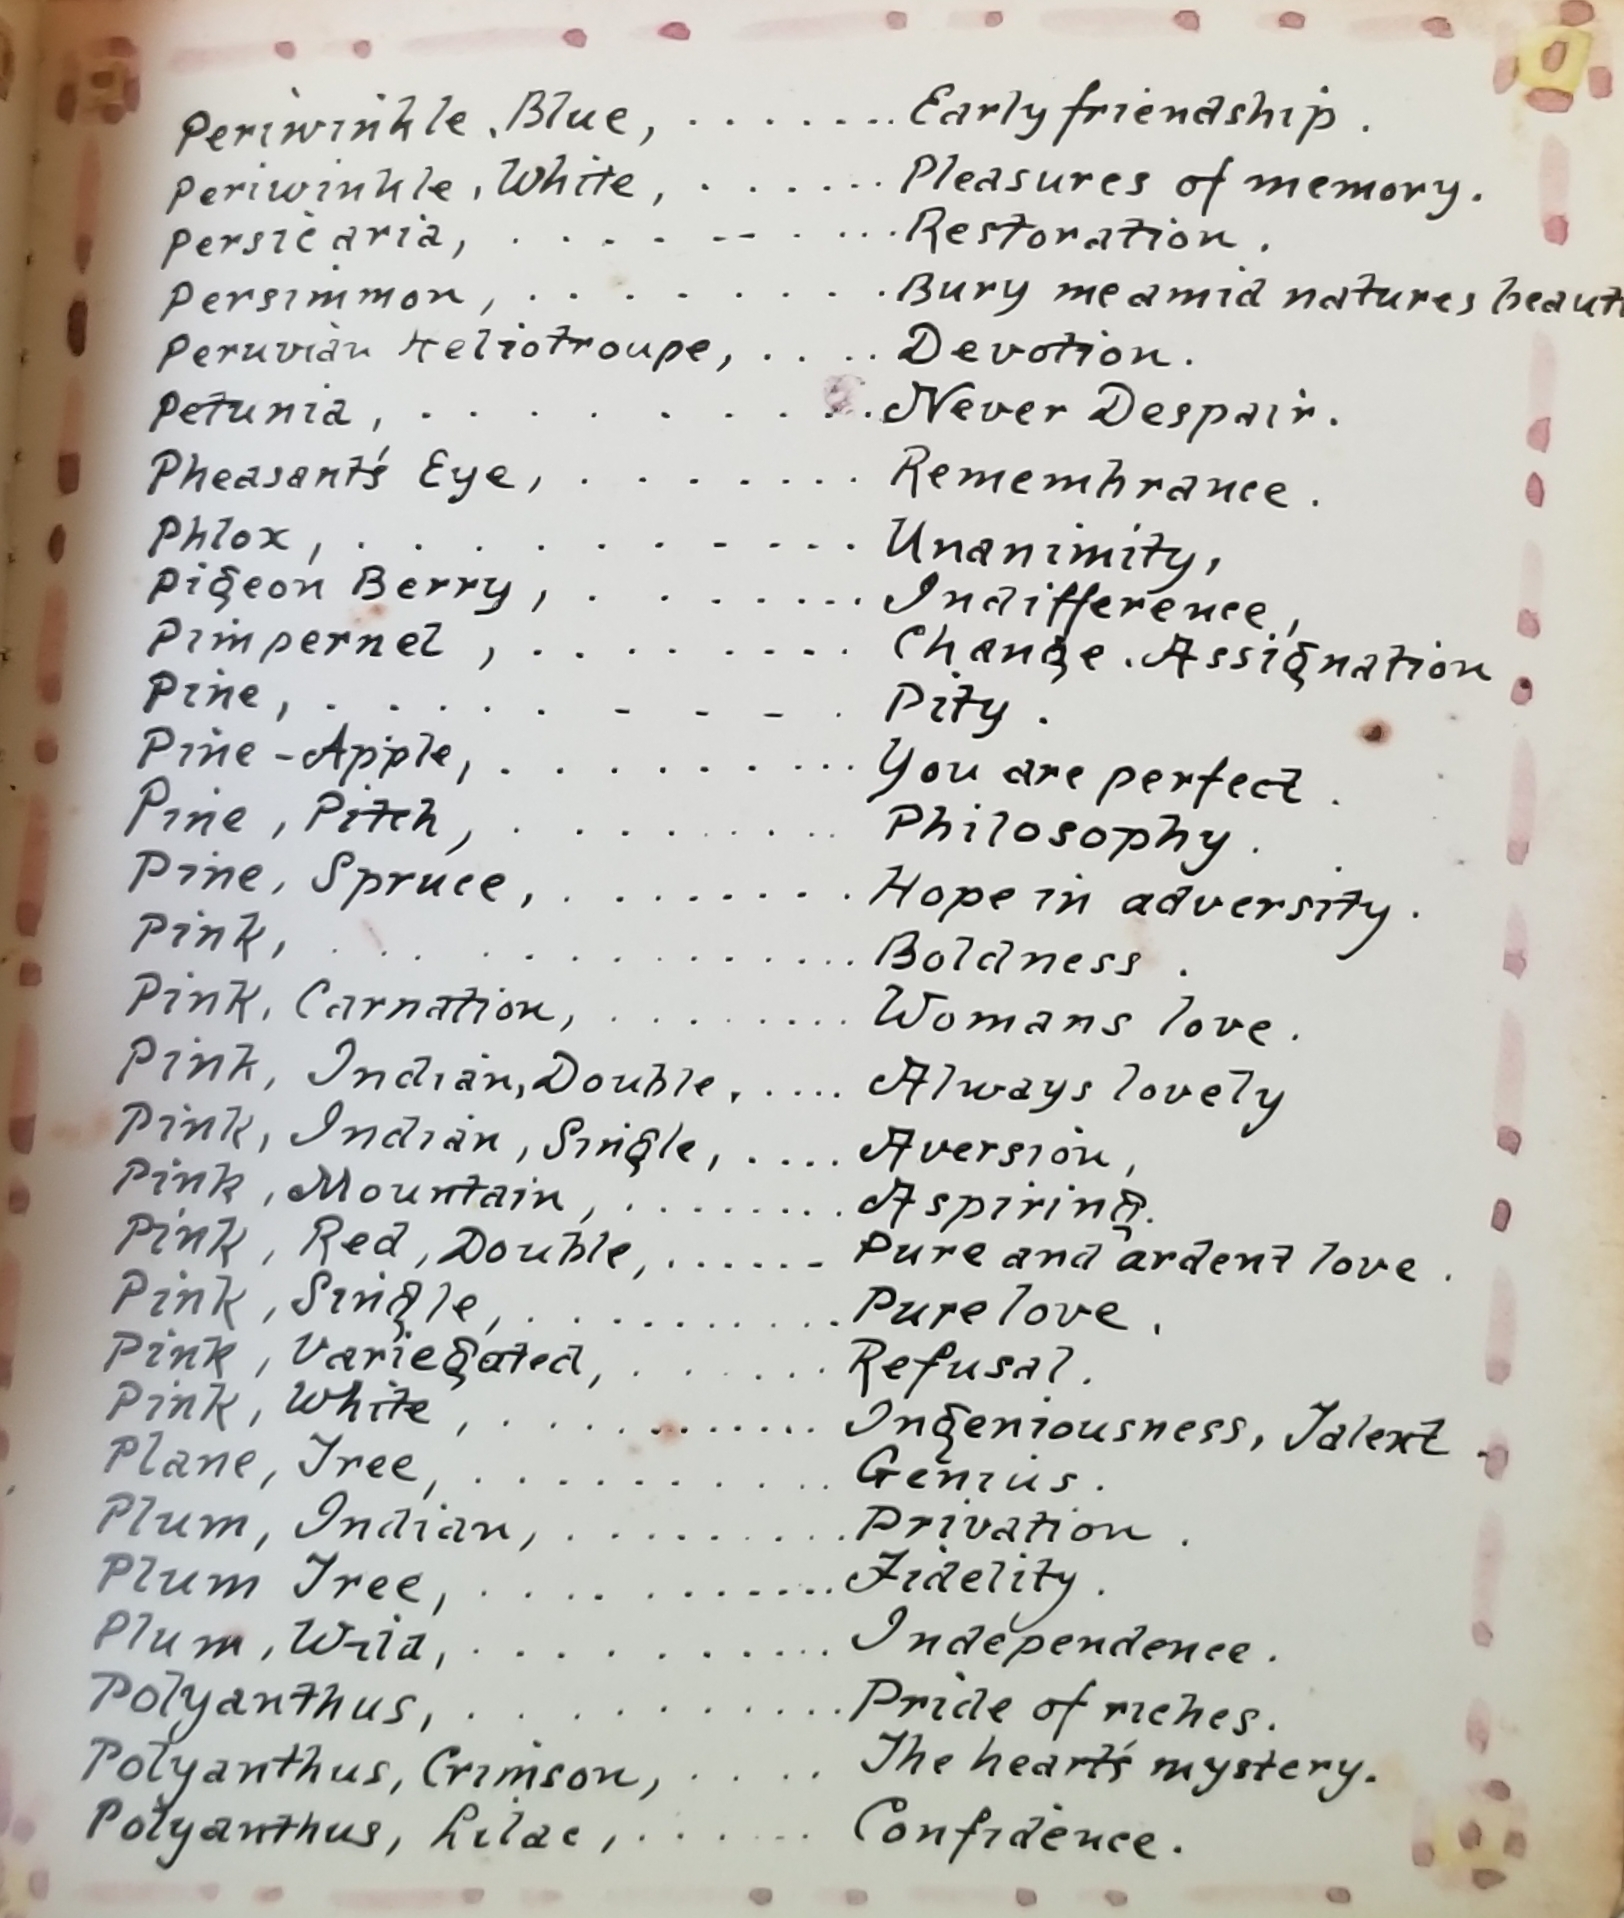 Periwinkle, Blue, ........ Early friendship.
Periwinkle, White, ....... Pleasures of memory.
Persicaria, . . . . -- . .... Restoration.
Persimmon, . . . . . . . . Bury me amid natures
Peruvian Heliotroupe, .... Devotion.
Petunia, . . . . . . . . . Never Despair.
Pheasant's Eye, ....... Remembrance.
Phlox, . . . . . . - - - - . Unanimity,
Pigeon Berry, ........ Indifference,
Pimpernel, ......... Change. Assignation
Pine, . . . . . - - - . Pity.
Pine-Apple, .......... You are perfect.
Pine, Pitch, ......... Philosophy.
Pine, Spruce, ........ Hope in adversity.
Pink, ............ Boldness.
Pink, Carnation, ........ Womans love.
Pink, Indian, Double, .... Always lovely
Pink, Indian, Single, .... Aversion,
Pink, Mountain, ........ Aspiring.
Pink, Red, Double, ......- Pure and ardent love.
Pink, Single, ........... Pure love.
Pink, Variegated, ...... Refusal.
Pink, White, .......... Ingeniousness, Talent.
Plane, Tree, .......... Genius.
Plum, Indian, ......... Privation.
Plum Tree, .......... Fidelity.
Plum, Wild, .......... Independence.
Polyanthus, .......... Pride of riches.
Polyanthus, Crimson, .... The heart's mystery.
Polyanthus, Lilac, ...... Confidence.